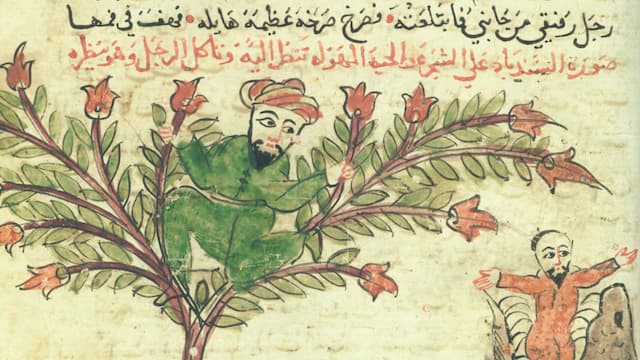 رجل رفيقي من جانبي فابتلعته • فصرخ صرخة عظيمة هايله • في فمها
صورة السندباد علي الشجرة والحية المهوله تنظر اليه وتاكل الرجل وهو ينظره